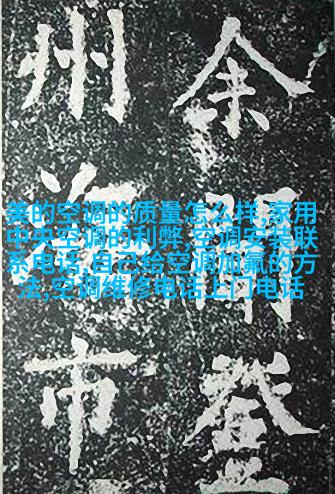 余聞登
州海市
美的空调的质量怎么样,家用
中央空调的利弊,空调安装联
系电话,自己给空调加氟的方
法,空调维修电话上门电话